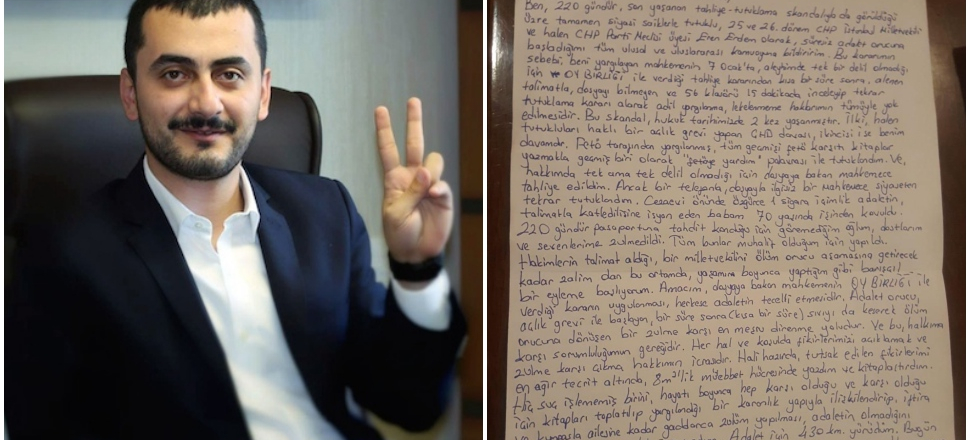 Ben, 220 gündür, son yaşanan tahliye-tutuklama skandalıyla da görüldüğü
üzere tamamen siyasi saiklerle tutuklu, 25 ve 26. dönem CHP İstanbul Milletvekili
ve halen CHP Parti Meclisi üyesi Eren Erdem olarak, süresiz adalet orucuna
başladığımı tüm ulusal ve uluslararası kamuoyuna bildiririm. Bu kararımın
sebebi, beni yargılayan mahkemenin 7 Ocak'ta, aleyhimde tek bir delil olmadığı
için OY BİRLİĞİ ile verdiği tahliye kararından kısa bir süre sonra, alenen
talimatla, dosyayı bilmeyen ve 56 klasörü 15 dakikada inceleyip tekrar
tutuklama kararı alarak adil yargılanma, lekelenmeme hakkımın tümüyle yok
edilmesidir. Bu skandal, hukuk tarihimizde 2 kez yaşanmıştır. İlki, halen
tutukluları haklı bir açlık grevi yapan ÇHD davası, ikincisi ise benim
davamdır. Fetö tarafından yargılanmış, tüm geçmişi fetö karşıtı kitaplar
yazmakla geçmiş biri olarak "fetöye yardım" palavrası ile tutuklandım. Ve,
hakkımda tek ama tek delil olmadığı için dosyaya bakan mahkemece
tahliye edildim. Ancak bir telefonla, dosyayla ilgisiz bir mahkemece siyaseten
tekrar tutuklandım. Cezaevi önünde özgürce 1 sigara içimlik adaletin,
talimatla katledilişine isyan eden babam 70 yaşında işinden kovuldu.
220 gündür pasaportuna tahdit konduğu için göremediğim oğlum, dostlarım
ve sevenlerime zulmedildi. Tüm bunlar muhalif olduğum için yapıldı.
Hakimlerin talimat aldığı, bir milletvekilini ölüm orucu aşamasına getirecek
kadar zalim olan bu ortamda, yaşamım boyunca yaptığım gibi barışçıl
bir eyleme başlıyorum. Amacım, dosyaya bakan mahkemenin OY BİRLİĞİ ile
verdiği kararın uygulanması, herkese adaletin tecelli etmesidir. Adalet orucu,
açlık grevi ile başlayan, bir süre sonra (kısa bir süre) sıvıyı da keserek ölüm
orucuna dönüşen bir zulme karşı en meşru direnme yoludur. Ve bu, halkıma
karşı sorumluluğumun gereğidir. Her hal ve koşulda fikirlerimizi açıklamak ve
zulme karşı çıkma hakkımın icrasıdır. Hali hazırda, tutsak edilen fikirlerimi
en ağır tecrit altında, 8m²'lik müebbet hücresinde yazdım ve kitaplaştırdım.
Hiç suç işlememiş birini, hayatı boyunca hep karşı olduğu ve karşı olduğu
için kitapları toplatılıp yargılandığı bir karanlık yapıyla ilişkilendirip, iftira
ve kumpasla ailesine kadar gaddarca zulüm yapılması, adaletin olmadığını
Adalet için 430 km. yürüdüm. Bugün